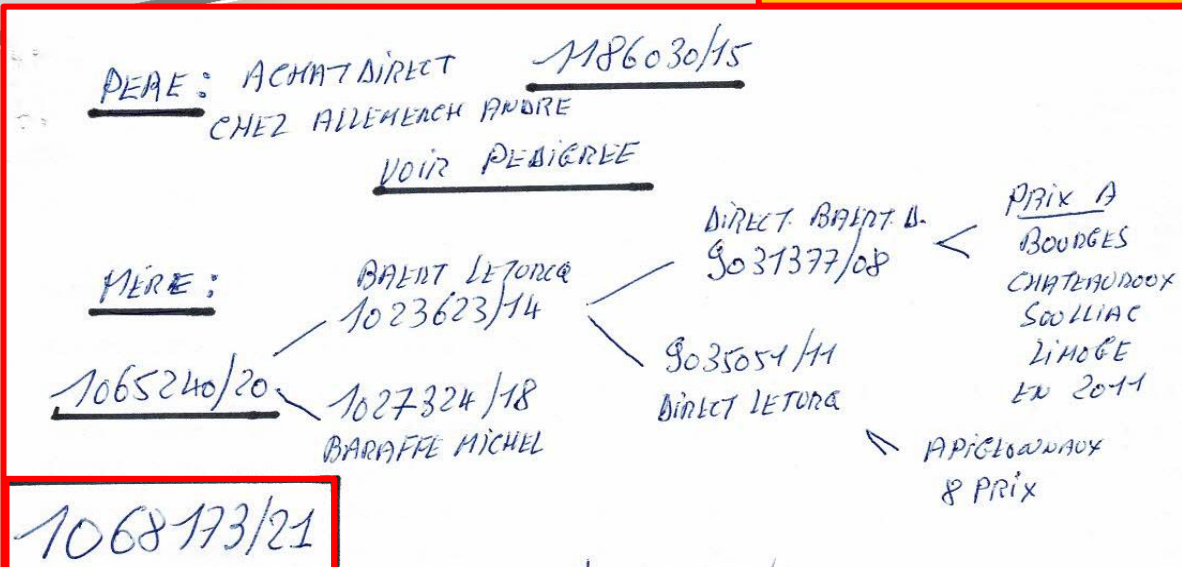 PERE : ACHAT DIRECT 1186030/15
CHEZ ALLEMERCH ANDRE
VOIR PEDIGREE
MÈRE :
1065240/20
BAERT LETORCQ
1023623/14
1027324/18
BARAFFE MICHEL
DIRECT BAERT D.
9031377/08
9035051/11
DIRECT LETORQ
PRIX A
BOURGES
CHATEAUROUX
SOULLIAC
LIMOGE
EN 2011
8 PRIX
1068173/21